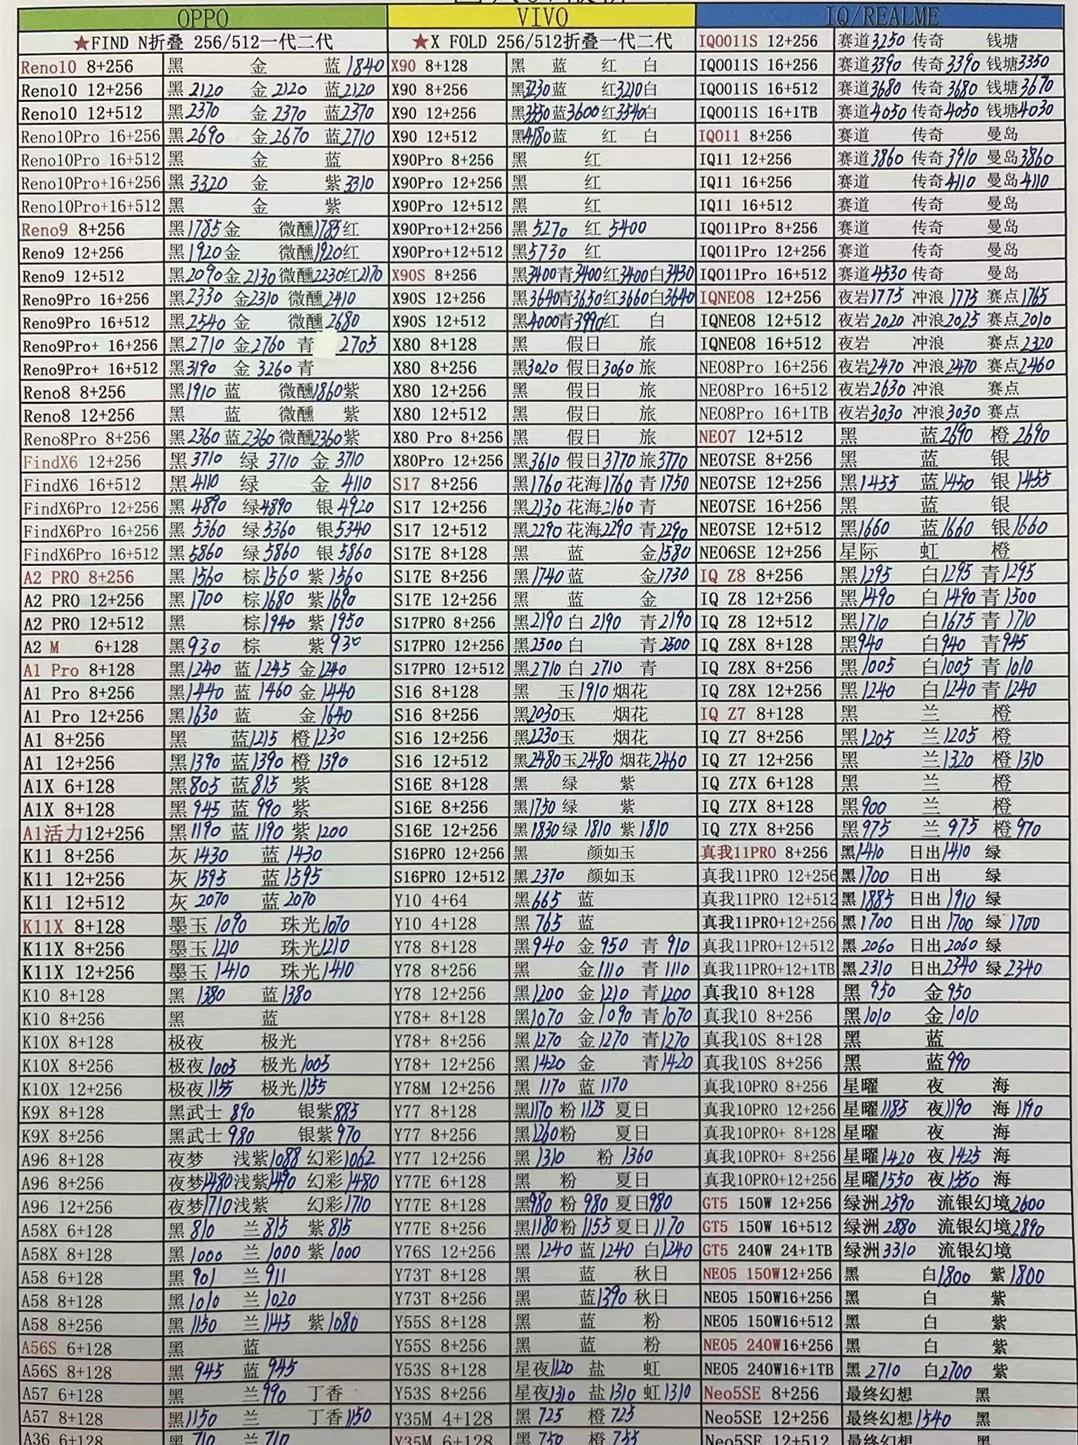 OPPO VIVO IQ/REALME
★FIND N折叠 256/512一代二代 ★X FOLD 256/512折叠一代二代 IQ0011S 12+256 赛道3250 传奇 钱塘
Reno10 8+256 黑 金 蓝1840 X90 8+128 黑 蓝 红 白 IQ0011S 16+256 赛道3390 传奇3390 钱塘3350
Reno10 12+256 黑2120 金2120 蓝2120 X90 8+256 黑3230蓝 红3210白 IQ0011S 16+512 赛道3680 传奇3680 钱塘3670
Reno10 12+512 黑2370 金2370 蓝2370 X90 12+256 黑3550蓝3600红3540白 IQ0011S 16+1TB 赛道4050 传奇4050 钱塘4030
Reno10Pro 16+256 黑2690 金2670 蓝2710 X90 12+512 黑4180蓝 红 白 IQ011 8+256 赛道 传奇 曼岛
Reno10Pro 16+512 黑 金 蓝 X90Pro 8+256 黑 红 IQ11 12+256 赛道3860 传奇3910 曼岛3860
Reno10Pro+16+256 黑3320 金 紫3310 X90Pro 12+256 黑 红 IQ11 16+256 赛道 传奇4110 曼岛4110
Reno10Pro+16+512 黑 金 紫 X90Pro 12+512 黑 红 IQ11 16+512 赛道 传奇 曼岛
Reno9 8+256 黑1785金 微醺1785红 X90Pro+12+256 黑5270 红5400 IQ011Pro 8+256 赛道 传奇 曼岛
Reno9 12+256 黑1920金 微醺1920红 X90Pro+12+512 黑5730 红 IQ011Pro 12+256 赛道 传奇 曼岛
Reno9 12+512 黑2090金2130微醺2230红2170 X90S 8+256 黑3400青3400红3400白3430 IQ011Pro 16+512 赛道4530传奇 曼岛
Reno9Pro 16+256 黑2330 金2310 微醺2410 X90S 12+256 黑3640青3650红3660白3640 IQNEO8 12+256 夜岩1775 冲浪1775 赛点1765
Reno9Pro 16+512 黑2540 金 微醺2680 X90S 12+512 黑4000青3990红 白 IQNEO8 12+512 夜岩2020 冲浪2025 赛点2010
Reno9Pro+ 16+256 黑2710 金2760 青 2705 X80 8+128 黑 假日 旅 IQNEO8 16+512 夜岩 冲浪 赛点2320
Reno9Pro+ 16+512 黑3190 金3260青 X80 8+256 黑3020 假日3060 旅 NEO8Pro 16+256 夜岩2470 冲浪2470 赛点2460
Reno8 8+256 黑1910 蓝 微醺1860紫 X80 12+256 黑 假日 旅 NEO8Pro 16+512 夜岩2630 冲浪 赛点
Reno8 12+256 黑 蓝 微醺 紫 X80 12+512 黑 假日 旅 NEO8Pro 16+1TB 夜岩3030 冲浪3030 赛点
Reno8Pro 8+256 黑2360 蓝2360 微醺2360紫 X80 Pro 8+256 黑 假日 旅 NEO7 12+512 黑 蓝2690 橙2690
FindX6 12+256 黑3710 绿3710 金3710 X80Pro 12+256 黑3610 假日3770 旅3770 NEO7SE 8+256 黑 蓝 银
FindX6 16+512 黑4110 绿 金4110 S17 8+256 黑1760 花海1760 青1750 NEO7SE 12+256 黑1455 蓝1450 银1455
FindX6Pro 12+256 黑4890 绿4890 银4920 S17 12+256 黑2130 花海2160 青 NEO7SE 16+256 黑 蓝 银
FindX6Pro 16+256 黑5360 绿5360 银5340 S17 12+512 黑2290 花海2290 青2290 NEO7SE 12+512 黑1660 蓝1660 银1660
FindX6Pro 16+512 黑5860 绿5860 银5860 S17E 8+128 黑 蓝 金1580 NEO6SE 12+256 星际 虹 橙
A2 PRO 8+256 黑1560 棕1560 紫1560 S17E 8+256 黑1740蓝 金1730 IQ Z8 8+256 黑1295 白1295 青1295
A2 PRO 12+256 黑1700 棕1680 紫1690 S17E 12+256 黑 蓝 金 IQ Z8 12+256 黑1490 白1490 青1500
A2 PRO 12+512 黑 棕1940 紫1950 S17PRO 8+256 黑2190白2190 青2190 IQ Z8 12+512 黑1710 白1675 青1710
A2 M 6+128 黑930 棕 紫930 S17PRO 12+256 黑2500白 青2500 IQ Z8X 8+128 黑940 白940 青945
A1 Pro 8+128 黑1240 蓝1245 金1240 S17PRO 12+512 黑2710白2710 青 IQ Z8X 8+256 黑1005 白1005 青1010
A1 Pro 8+256 黑1440 蓝1460 金1440 S16 8+128 黑 玉1910 烟花 IQ Z8X 12+256 黑1240 白1240 青1240
A1 Pro 12+256 黑1630 蓝 金1640 S16 8+256 黑2030玉 烟花 IQ Z7 8+128 黑 兰 橙
A1 8+256 黑 蓝1215 橙1230 S16 12+256 黑2230玉 烟花 IQ Z7 8+256 黑1205 兰1205 橙
A1 12+256 黑1390 蓝1390 橙1390 S16 12+512 黑2480玉2480 烟花2460 IQ Z7 12+256 黑 兰1320 橙1310
A1X 6+128 黑805 蓝815 紫 S16E 8+128 黑 绿 紫 IQ Z7X 6+128 黑 兰 橙
A1X 8+128 黑945 蓝990 紫 S16E 8+256 黑1750绿 紫 IQ Z7X 8+128 黑900 兰 橙
A1活力12+256 黑1190 蓝1190 紫1200 S16E 12+256 黑1830绿1810 紫1810 IQ Z7X 8+256 黑975 兰975 橙970
K11 8+256 灰1430 蓝1430 S16PRO 12+256 黑 颜如玉 真我11PRO 8+256 黑1410 日出1410 绿
K11 12+256 灰1595 蓝1595 S16PRO 12+512 黑2370 颜如玉 真我11PRO 12+256 黑1700 日出 绿
K11 12+512 灰2070 蓝2070 Y10 4+64 黑665 蓝 真我11PRO 12+512 黑1885 日出1910 绿
K11X 8+128 墨玉1090 珠光1070 Y10 4+128 黑765 蓝 真我11PRO+12+256 黑1700 日出1700 绿1700
K11X 8+256 墨玉1210 珠光1210 Y78 8+128 黑940 金950 青910 真我11PRO+12+512 黑2060 日出2060 绿
K11X 12+256 墨玉1410 珠光1410 Y78 8+256 黑 金1110 青1110 真我11PRO+12+1TB 黑2310 日出2340 绿2340
K10 8+128 黑1380 蓝1380 Y78 12+256 黑1200 金1210 青1200 真我10 8+128 黑950 金950
K10 8+256 黑 蓝 Y78+ 8+128 黑1070 金1090 青1070 真我10 8+256 黑1010 金1010
K10X 8+128 极夜 极光 Y78+ 8+256 黑1270 金1270 青1270 真我10S 8+128 黑 蓝
K10X 8+256 极夜1005 极光1005 Y78+ 12+256 黑1420 金 青1420 真我10S 8+256 黑 蓝990
K10X 12+256 极夜1155 极光1155 Y78M 12+256 黑1170 蓝1170 真我10PRO 8+256 星曜 夜 海
K9X 8+128 黑武士890 银紫885 Y77 8+128 黑1170 粉1125 夏日 真我10PRO 12+256 星曜1185 夜1190 海1190
K9X 8+256 黑武士980 银紫970 Y77 8+256 黑1260粉 夏日 真我10PRO+ 8+128 星曜 夜 海
A96 8+128 夜梦 浅紫1088 幻彩1062 Y77 12+256 黑1310 粉1360 真我10PRO+ 8+256 星曜1420 夜1425 海
A96 8+256 夜梦1480浅紫1490 幻彩1480 Y77E 6+128 黑 粉 夏日 真我10PRO+12+256 星曜1550 夜1550 海
A96 12+256 夜梦1710浅紫 幻彩1710 Y77E 8+128 黑980 粉980 夏日980 GT5 150W 12+256 绿洲2590 流银幻境2600
A58X 6+128 黑810 兰815 紫815 Y77E 8+256 黑1180粉1155夏日1170 GT5 150W 16+512 绿洲2880 流银幻境2890
A58X 8+128 黑1000 兰1000 紫1000 Y76S 12+256 黑1240 蓝1240 白1240 GT5 240W 24+1TB 绿洲3310 流银幻境
A58 6+128 黑901 兰911 Y73T 8+128 黑 蓝 秋日 NEO5 150W12+256 黑 白1800 紫1800
A58 8+128 黑1010 兰1020 Y73T 8+256 黑 蓝1390秋日 NEO5 150W16+256 黑 白 紫
A58 8+256 黑1150 兰1145 紫1080 Y55S 8+128 黑 蓝 粉 NEO5 150W16+512 黑 白 紫
A56S 6+128 黑 蓝 Y55S 8+256 黑 蓝 粉 NEO5 240W16+256 黑 白 紫
A56S 8+128 黑945 蓝945 Y53S 8+128 星夜1120 盐 虹 NEO5 240W16+1TB 黑2710 白2700 紫
A57 6+128 黑 兰990 丁香 Y53S 8+256 星夜1310 盐1310 虹1310 Neo5SE 8+256 最终幻想 黑
A57 8+128 黑1150 兰 丁香1150 Y35M 4+128 黑725 橙725 Neo5SE 12+256 最终幻想1540 黑
A36 6+128 黑710 兰710 Y35M 6+128 黑750 橙755 Neo5SE 12+512 最终幻想 黑